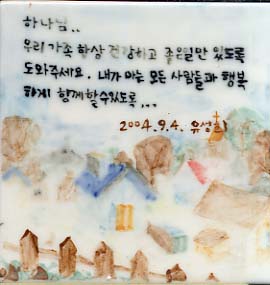 하나님..
우리 가족 항상 건강하고 좋은일만 있도록
도와주세요. 내가 아는 모든 사람들과 행복
하게 함께 할 수 있도록...
2004.9.4. 유성희